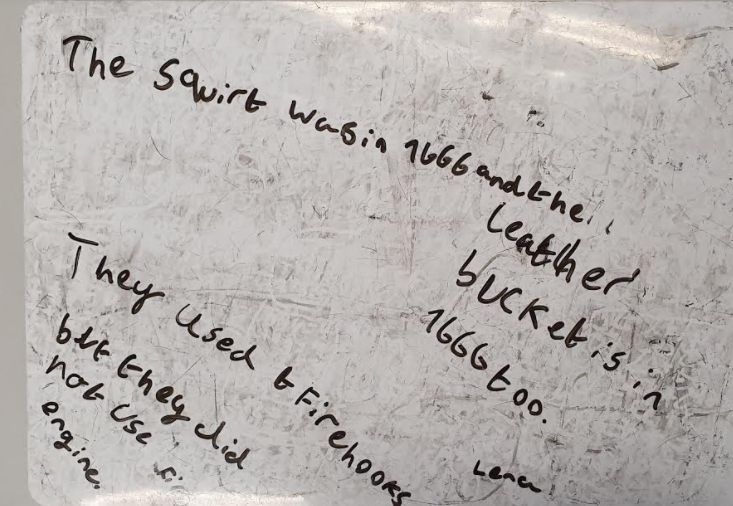 The squirt was in 1666 and the
leather
bucket is in
1666 too.
They used t Firehooks
but they did
not use fi
engine.
Lena